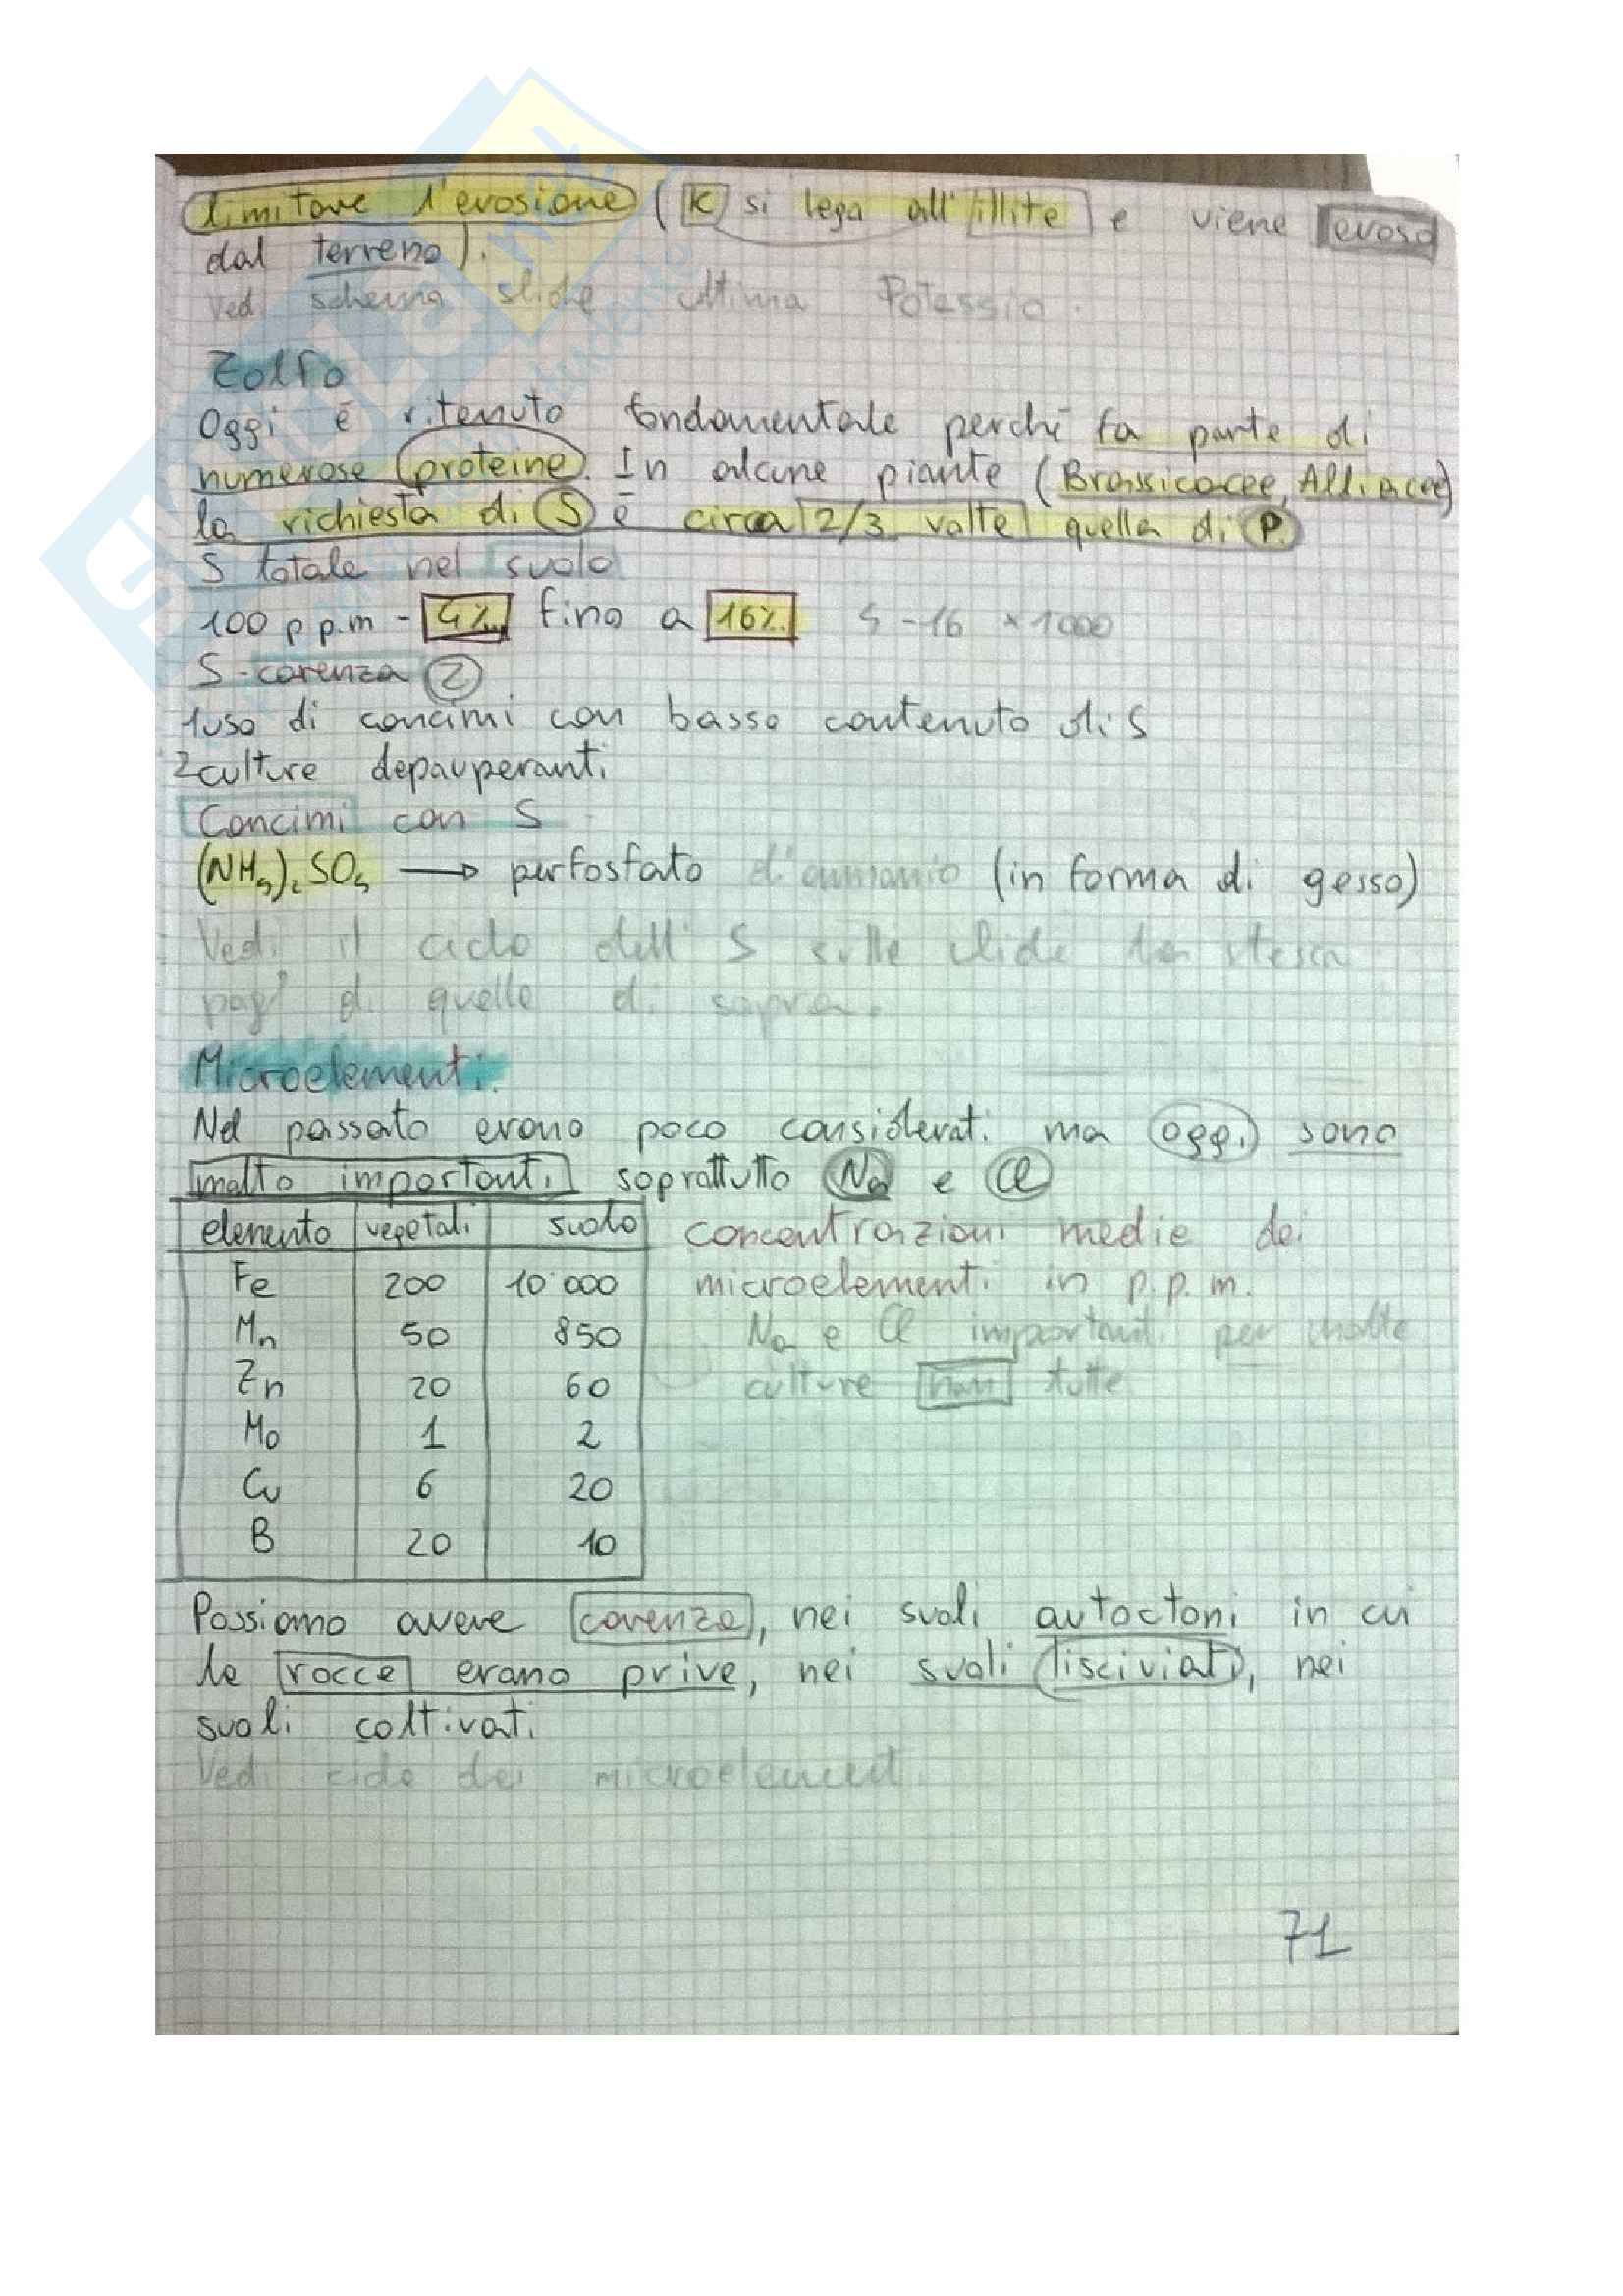 limitare l'erosione (K si lega all'illite e viene eroso
dal terreno).
Vedi schema slide ultima Potassio.
Zolfo
Oggi è ritenuto fondamentale perché fa parte di
numerose proteine. In alcune piante (Brassicacee, Alliacee)
la richiesta di S è circa 2/3 volte quella di P.
S totale nel suolo
100 p.p.m - 4‰ fino a 16‰ 4-16 x1000
S-carenza 2
1 uso di concimi con basso contenuto di S
2 culture depauperanti
Concimi con S
(NH4)2SO4 → perfosfato d'ammonio (in forma di gesso)
Vedi il ciclo dell'S sulle slide la stessa
pag. di quelle di sopra.
Microelementi.
Nel passato erano poco considerati ma oggi sono
molto importanti soprattutto Na e Cl
elemento vegetali suolo concentrazioni medie dei
Fe 200 10'000 microelementi in p.p.m.
Mn 50 850 Na e Cl importanti per molte
Zn 20 60 culture non tutte
Mo 1 2
Cu 6 20
B 20 10
Possiamo avere carenza, nei suoli autoctoni in cui
le rocce erano prive, nei suoli lisciviati, nei
suoli coltivati
Vedi ciclo dei microelementi
71